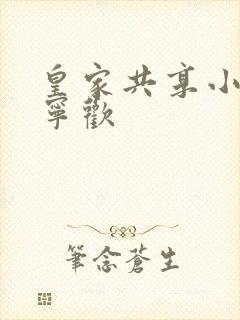 皇家共享小
寧歡
筆念蒼生